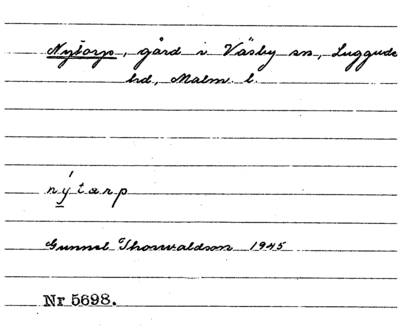 Nytorp, gård i Väsby sn, Luggude
hd, Malm. l.
nýtærp
Gunnel Thorwaldson 1945
Nr 5698.